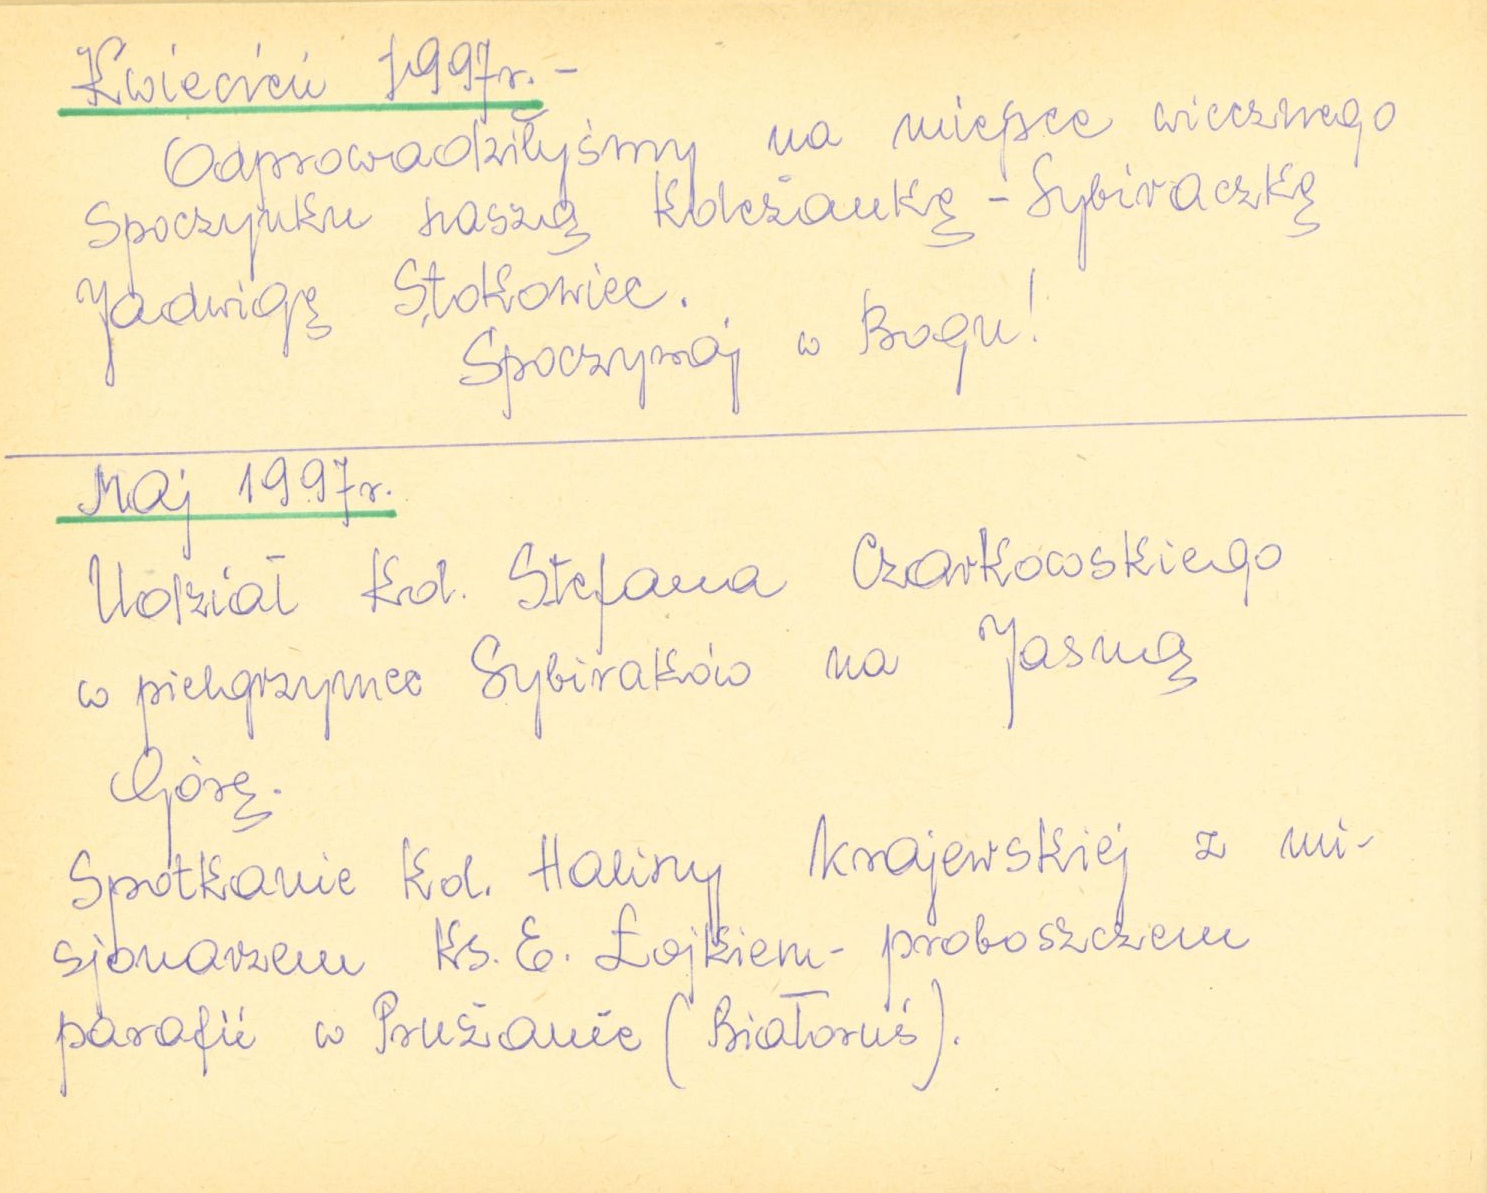 Kwiecień 1997r. -
Odprowadziłyśmy na miejsce wiecznego
spoczynku naszą Koleżankę - Sybiraczkę
Jadwigę Stokowiec.
Spoczywaj w Bogu!
Maj 1997r.
Udział Kol. Stefana Czarkowskiego
w pielgrzymce Sybiraków na Jasną
Górę.
Spotkanie Kol. Haliny Krajewskiej z mi-
sjonarzem Ks. E. Łojkiem - proboszczem
parafii w Prużanie (Białoruś).